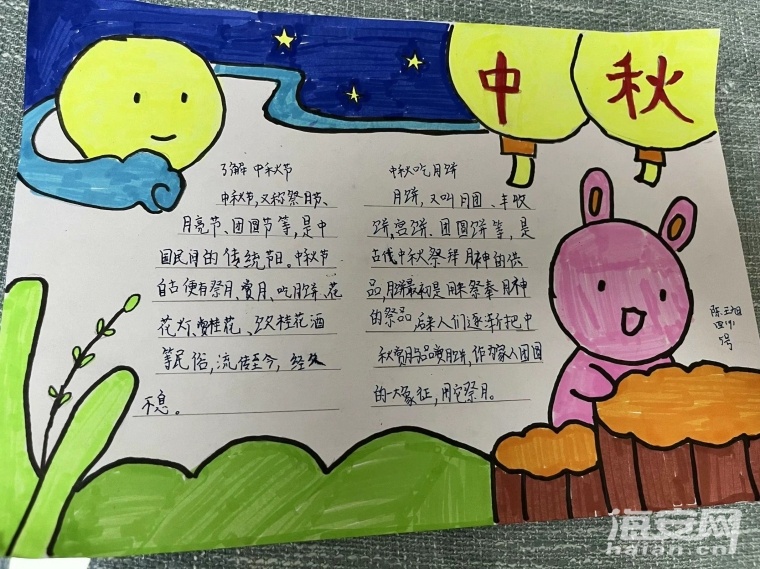 中秋
了解中秋节
中秋节,又称祭月节、
月亮节、团圆节等,是中
国民间的传统节日。中秋节
自古便有祭月、赏月、吃月饼、花
花灯、赏桂花、饮桂花酒
等民俗,流传至今,经久
不息。
中秋吃月饼
月饼,又叫月团、丰收
饼,宫饼、团圆饼等,是
古代中秋祭拜月神的供
品,月饼最初是用来祭奉月神
的祭品,后来人们逐渐把中
秋赏月与品赏月饼,作为家人团圆
的一大象征,用它祭月。
陈
四
号
海安网
haian.cn